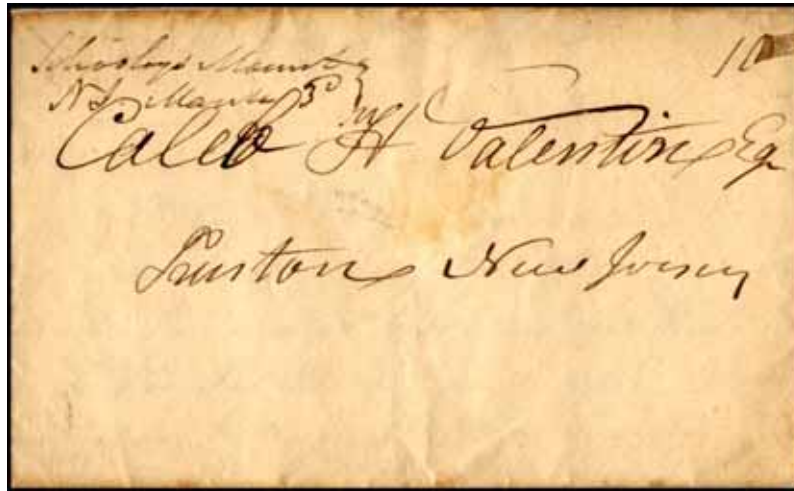 Schooley's Mount
10
N J March 3d
Caleb H Valentine Esq
Trenton New Jersey